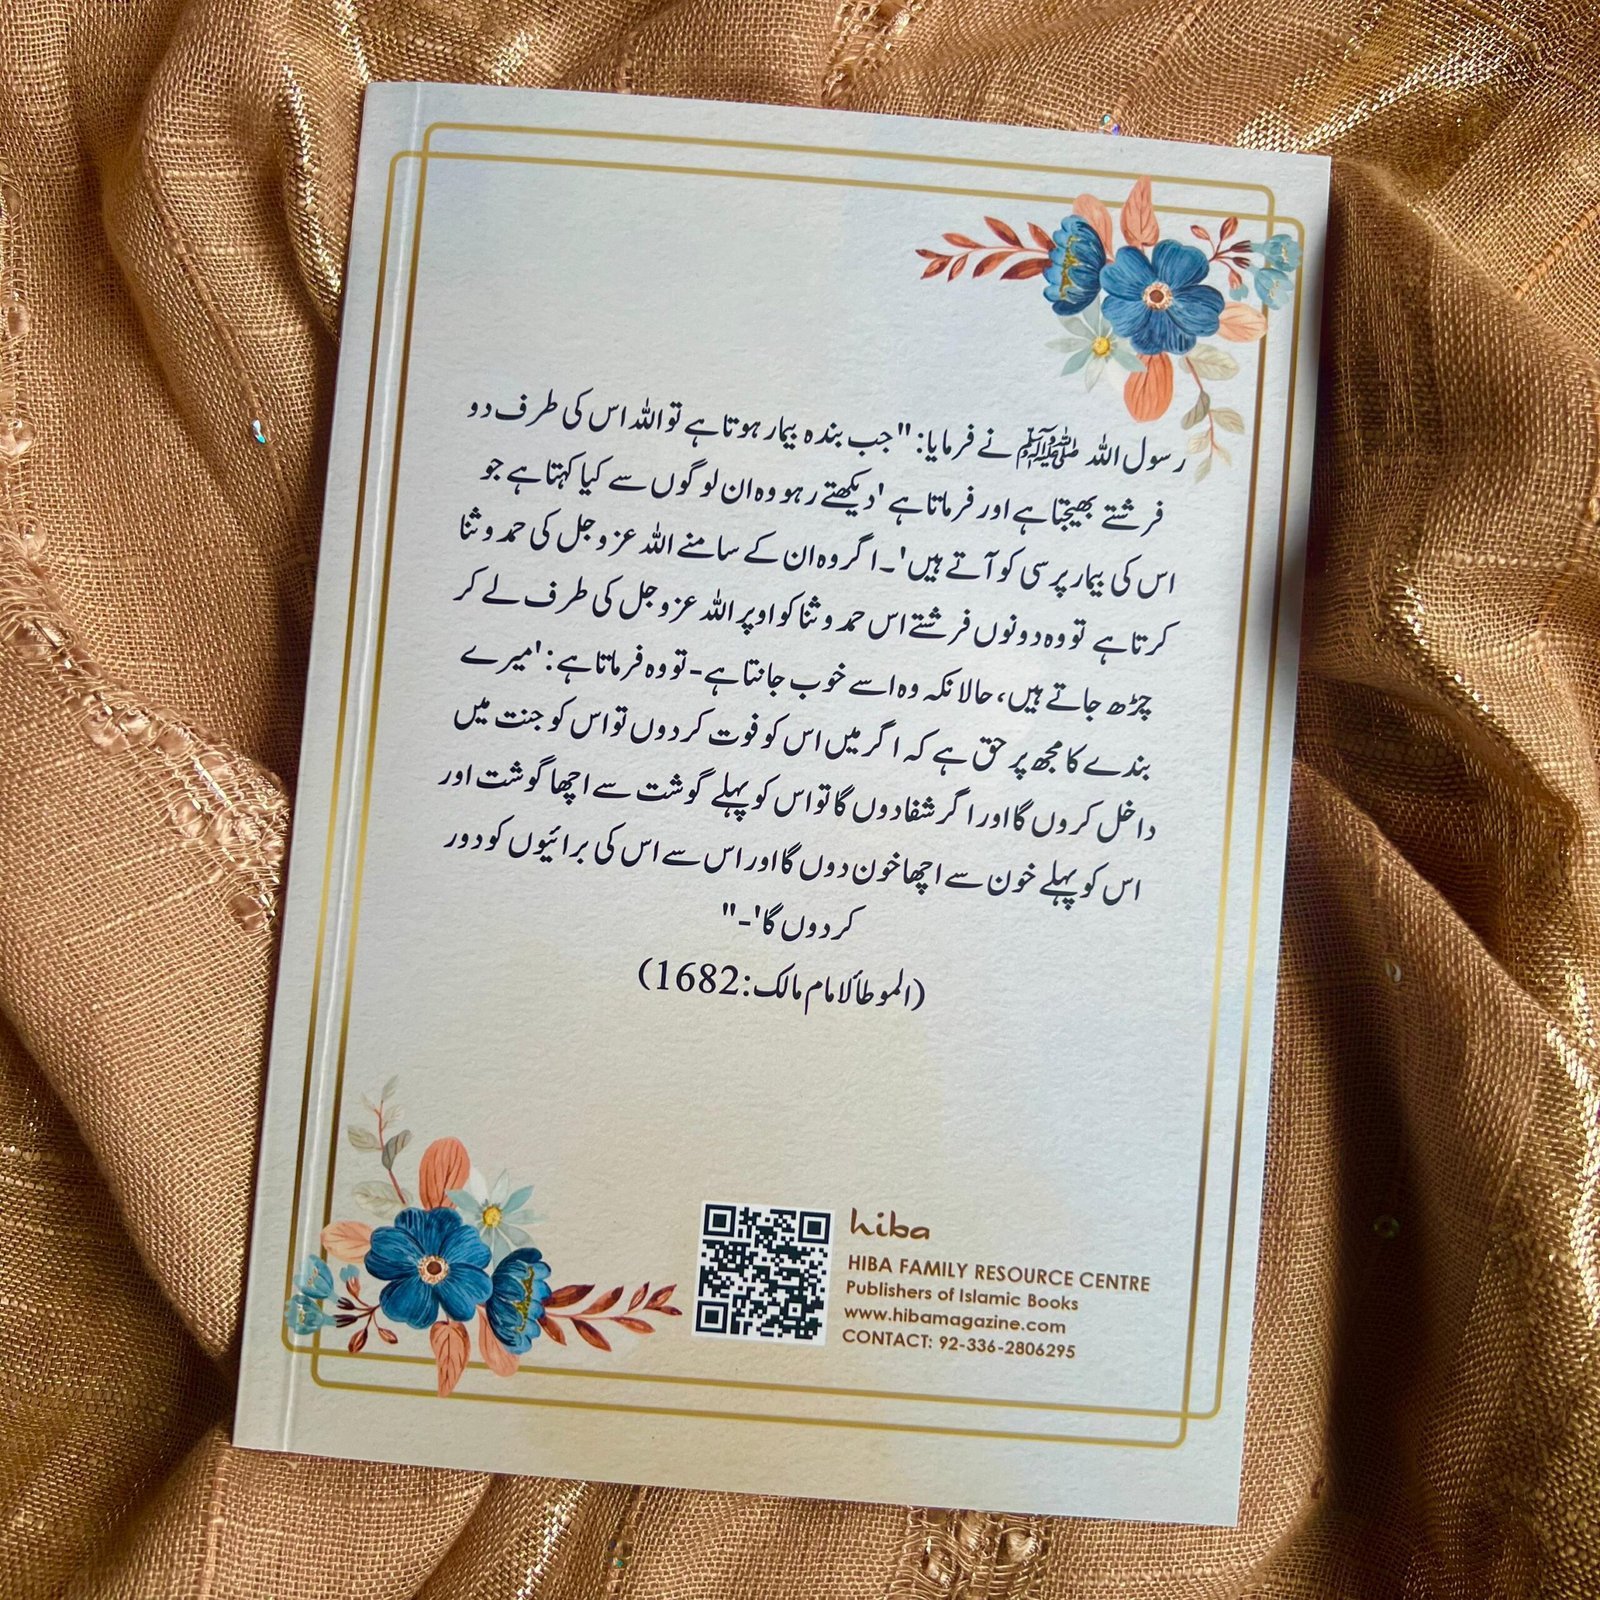 رسول اللہ ﷺ نے فرمایا: "جب بندہ بیمار ہوتا ہے تو اللہ اس کی طرف دو
فرشتے بھیجتا ہے اور فرماتا ہے 'دیکھتے رہو وہ ان لوگوں سے کیا کہتا ہے جو
اس کی بیمار پرسی کو آتے ہیں'۔ اگر وہ ان کے سامنے اللہ عزوجل کی حمد و ثنا
کرتا ہے تو وہ دونوں فرشتے اس حمد و ثنا کو اوپر اللہ عزوجل کی طرف لے کر
چڑھ جاتے ہیں، حالانکہ وہ اسے خوب جانتا ہے- تو وہ فرماتا ہے: 'میرے
بندے کا مجھ پر حق ہے کہ اگر میں اس کو فوت کر دوں تو اس کو جنت میں
داخل کروں گا اور اگر شفا دوں گا تو اس کو پہلے گوشت سے اچھا گوشت اور
اس کو پہلے خون سے اچھا خون دوں گا اور اس سے اس کی برائیوں کو دور
کر دوں گا'-"
(الموطأ لامام مالک: 1682)
hiba
HIBA FAMILY RESOURCE CENTRE
Publishers of Islamic Books
www.hibamagazine.com
CONTACT: 92-336-2806295